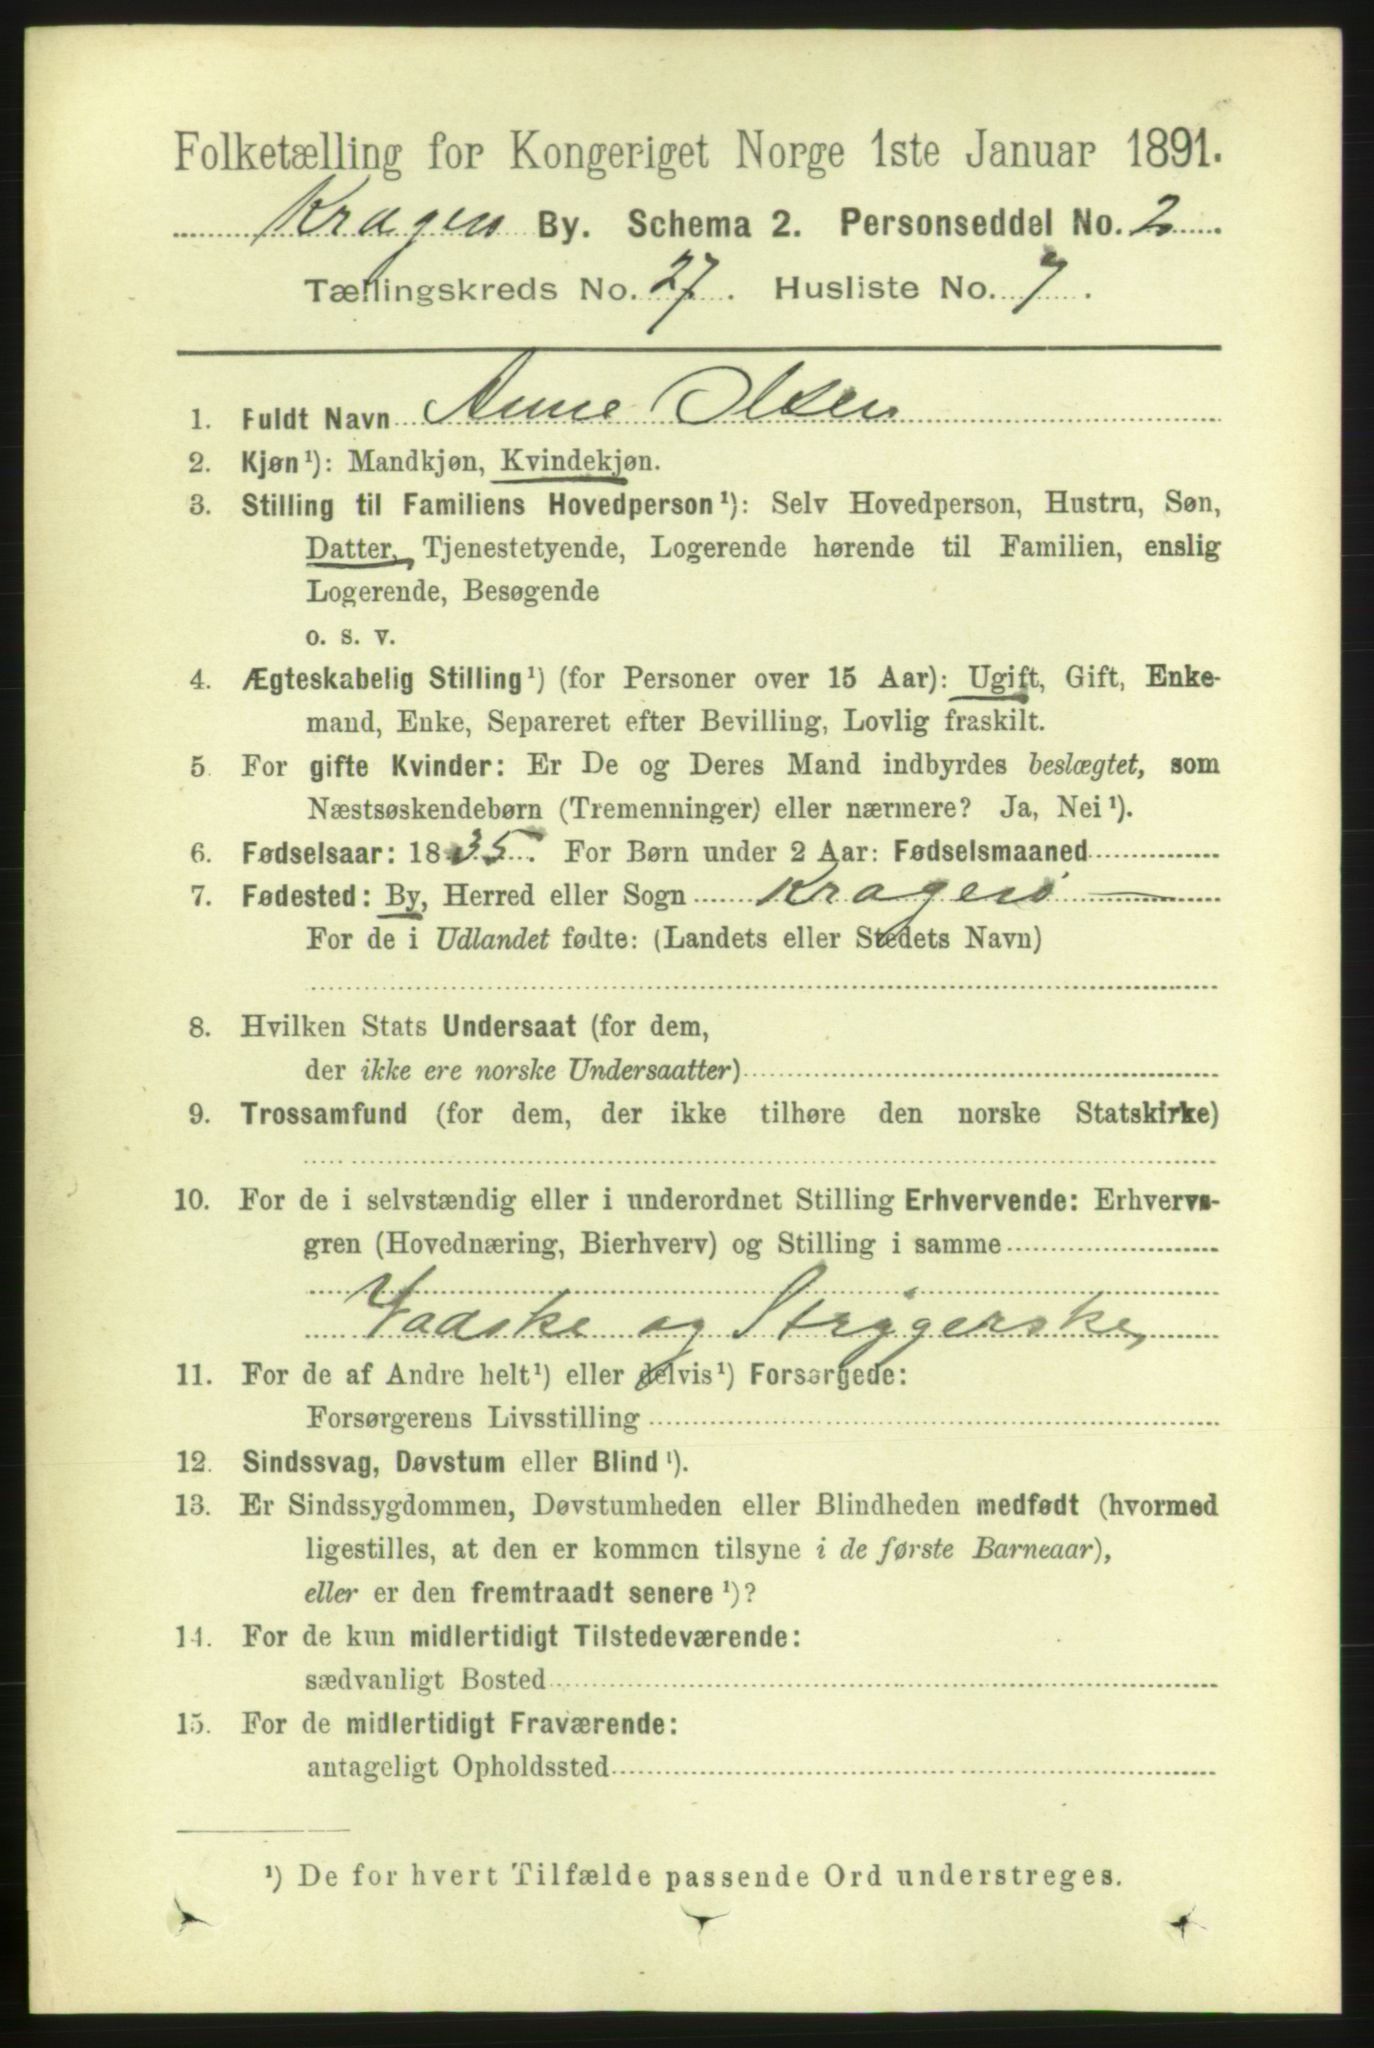 Folketælling for Kongeriget Norge 1ste Januar 1891.
Kragerø By. Schema 2. Personseddel No. 2
Tællingskreds No. 27. Husliste No. 7.
1. Fuldt Navn Anne Olsen
2. Kjøn¹): Mandkjøn, Kvindekjøn.
3. Stilling til Familiens Hovedperson¹): Selv Hovedperson, Hustru, Søn,
Datter, Tjenestetyende, Logerende hørende til Familien, enslig
Logerende, Besøgende
o. s. v.
4. Ægteskabelig Stilling¹) (for Personer over 15 Aar): Ugift, Gift, Enke-
mand, Enke, Separeret efter Bevilling, Lovlig fraskilt.
5 For gifte Kvinder: Er De og Deres Mand indbyrdes beslægtet, som
Næstsøskendebørn (Tremenninger) eller nærmere? Ja, Nei¹).
6. Fødselsaar: 1835. For Børn under 2 Aar: Fødselsmaaned
7. Fødested: By, Herred eller Sogn Kragerø
For de i Udlandet fødte: (Landets eller Stedets Navn)
8. Hvilken Stats Undersaat (for dem,
der ikke ere norske Undersaatter)
9. Trossamfund (for dem, der ikke tilhøre den norske Statskirke)
10. For de i selvstændig eller i underordnet Stilling Erhvervende: Erhvervs-
gren (Hovednæring, Bierhverv) og Stilling i samme
Vadske og Strygerske
11. For de af Andre helt¹) eller delvis¹) Forsørgede:
Forsørgerens Livsstilling
12. Sindssvag, Døvstum eller Blind¹).
13. Er Sindssygdommen, Døvstumheden eller Blindheden medfødt (hvormed
ligestilles, at den er kommen tilsyne i de første Barneaar),
eller er den fremtraadt senere¹)?
14. For de kun midlertidigt Tilstedeværende:
sædvanligt Bosted
15. For de midlertidigt Fraværende:
antageligt Opholdssted
¹) De for hvert Tilfælde passende Ord understreges.